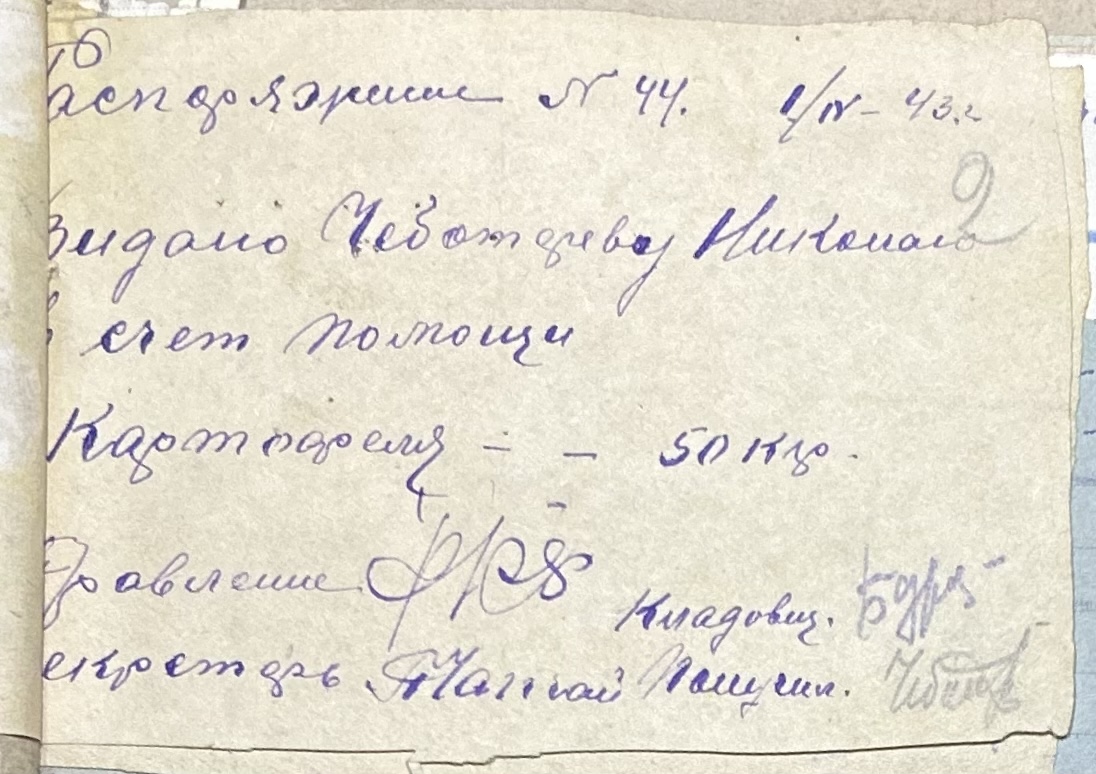 Распоряжение N 44. 1/IV-43.г
9
Видано Чеботареву Николаю
в счет помощи
Картофеля - - 50 кгр.
Правление
Кладовщ.
Секретарь Получил.